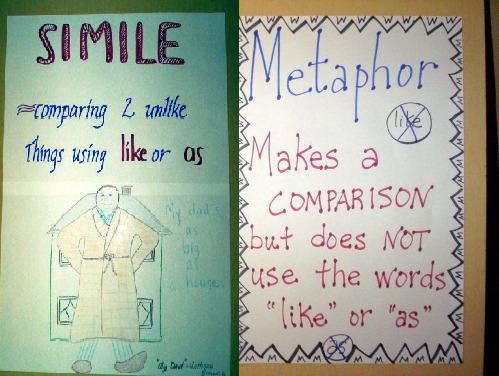 SIMILE
comparing 2 unlike
Things using like or as
My dad's
as
big
as
a house.
"My Dad"
Metaphor
like
Makes a
COMPARISON
but does NOT
use the words
"like" or "as"
as